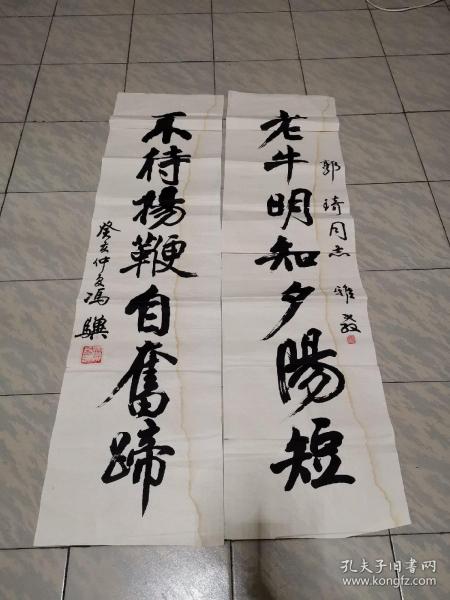 老牛明知夕陽短
郭琦同志雅教
不待揚鞭自奮蹄
癸亥仲夏馮驥
孔夫子旧书网
www.kongfz.com